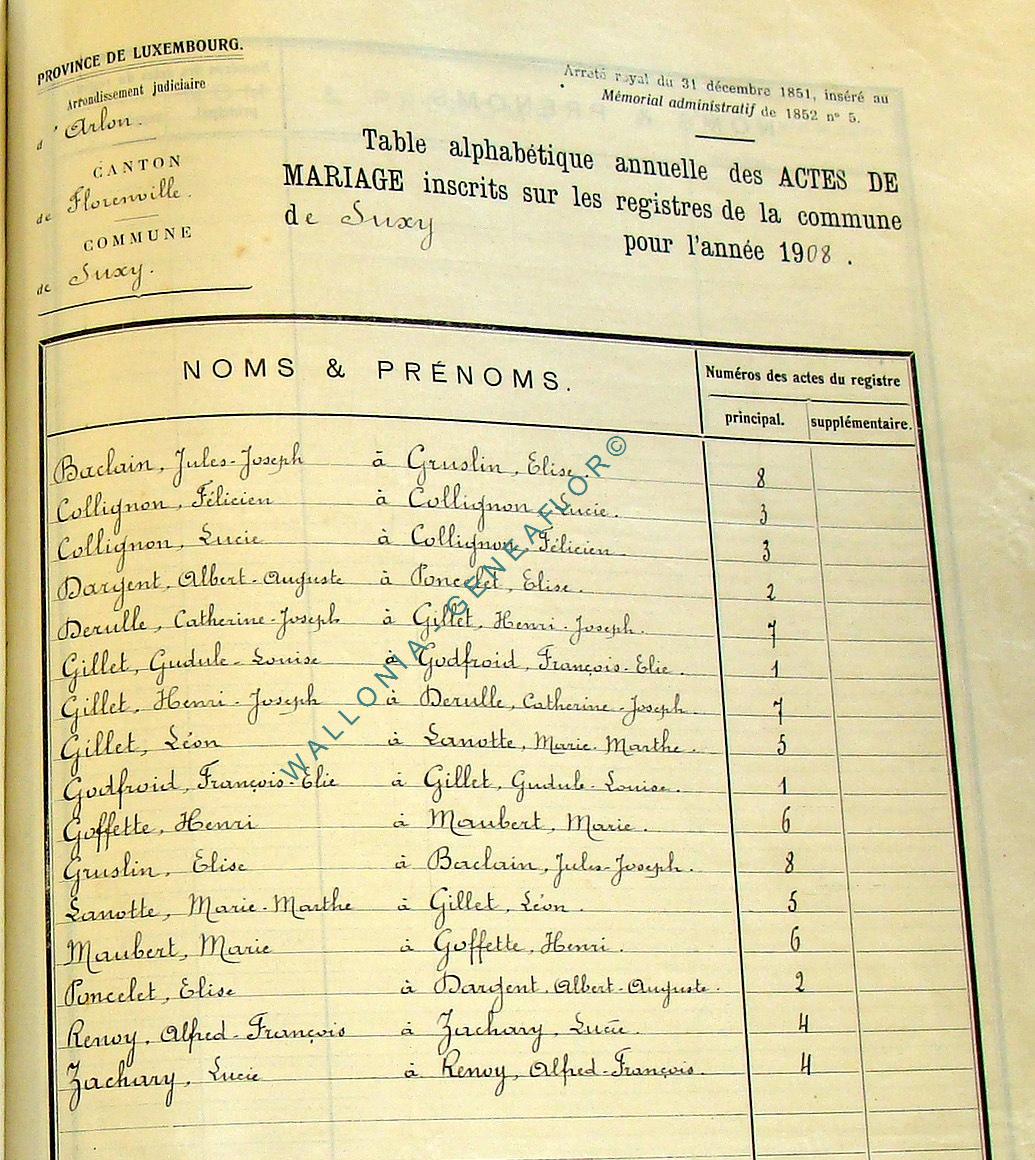 PROVINCE DE LUXEMBOURG.
Arrondissement judiciaire
d'Arlon.
CANTON
de Florenville.
COMMUNE
de Suxy.
Arrêté royal du 31 décembre 1851, inséré au
Mémorial administratif de 1852 n° 5.
Table alphabétique annuelle des ACTES DE
MARIAGE inscrits sur les registres de la commune
de Suxy pour l'année 1908.
NOMS & PRÉNOMS.
Numéros des actes du registre
principal. supplémentaire.
Baclain, Jules-Joseph à Gruslin, Elise. 8
Collignon, Félicien à Collignon, Lucie. 3
Collignon, Lucie à Collignon, Félicien. 3
Dargent, Albert-Auguste à Poncelet, Elise. 2
Derulle, Catherine-Joseph à Gillet, Henri-Joseph. 7
Gillet, Gudule-Louise à Godfroid, François-Elie. 1
Gillet, Henri-Joseph à Derulle, Catherine-Joseph. 7
Gillet, Léon à Lanotte, Marie-Marthe. 5
Godfroid, François-Elie à Gillet, Gudule-Louise. 1
Goffette, Henri à Maubert, Marie. 6
Gruslin, Elise à Baclain, Jules-Joseph. 8
Lanotte, Marie-Marthe à Gillet, Léon. 5
Maubert, Marie à Goffette, Henri. 6
Poncelet, Elise à Dargent, Albert-Auguste. 2
Renoy, Alfred-François à Zachary, Lucie. 4
Zachary, Lucie à Renoy, Alfred-François. 4
WALLONIA - GENEAFLOR©